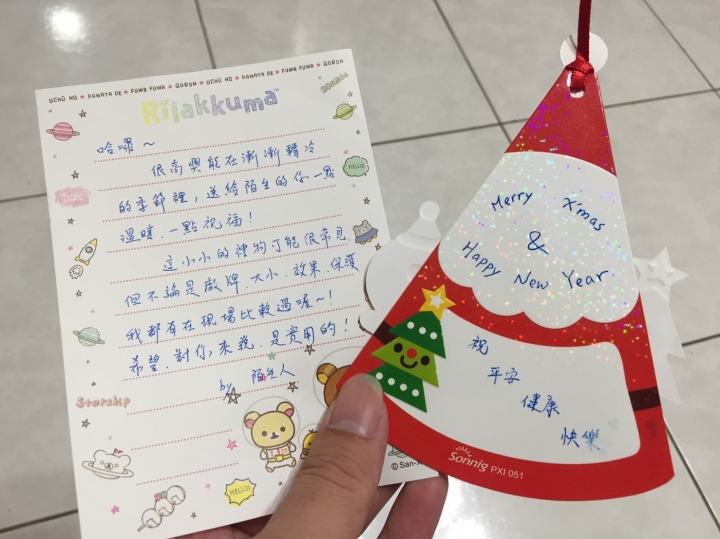 UCHŪ NO ★ KANATA DE ★ FUWA FUWA ★ GORON ★ UCHŪ NO ★ KANATA DE ★ FUWA FUWA ★ GORON
Rilakkuma™
哈囉~
很高興能在漸漸轉冷
的季節裡,送給陌生的你一點
溫暖.一點祝福!
這小小的禮物可能很常見
但不論是廠牌.大小.效果.保護
我都有在現場比較過喔~!
希望.對你來說.是實用的!
by 陌生人
HELLO!
Starship
HELLO!
© San-X
Merry X'mas
&
Happy New Year
祝
平安
健康
快樂
Sonnig PXI 051